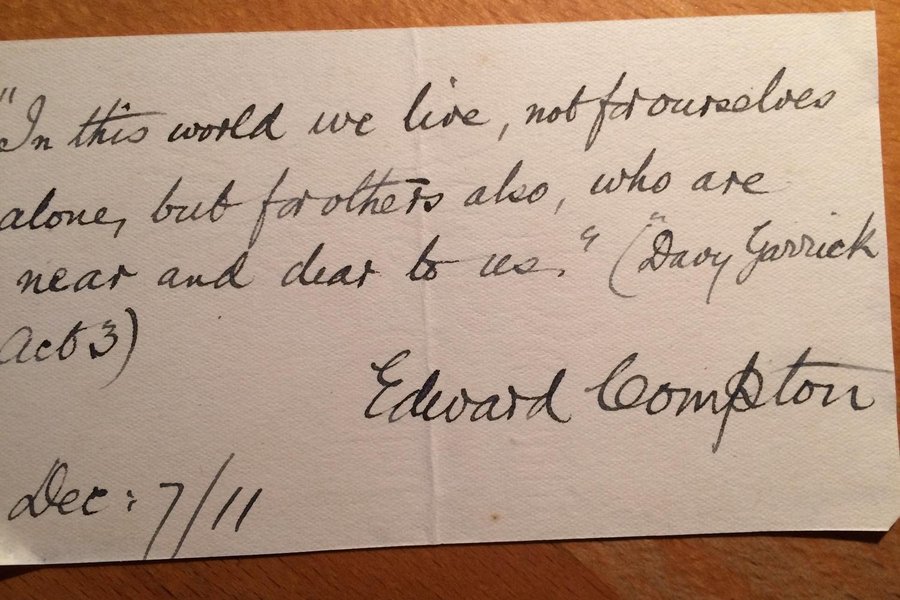 "In this world we live, not for ourselves
alone, but for others also, who are
near and dear to us." ("Davy Garrick
Act 3)
Edward Compton
Dec: 7/11